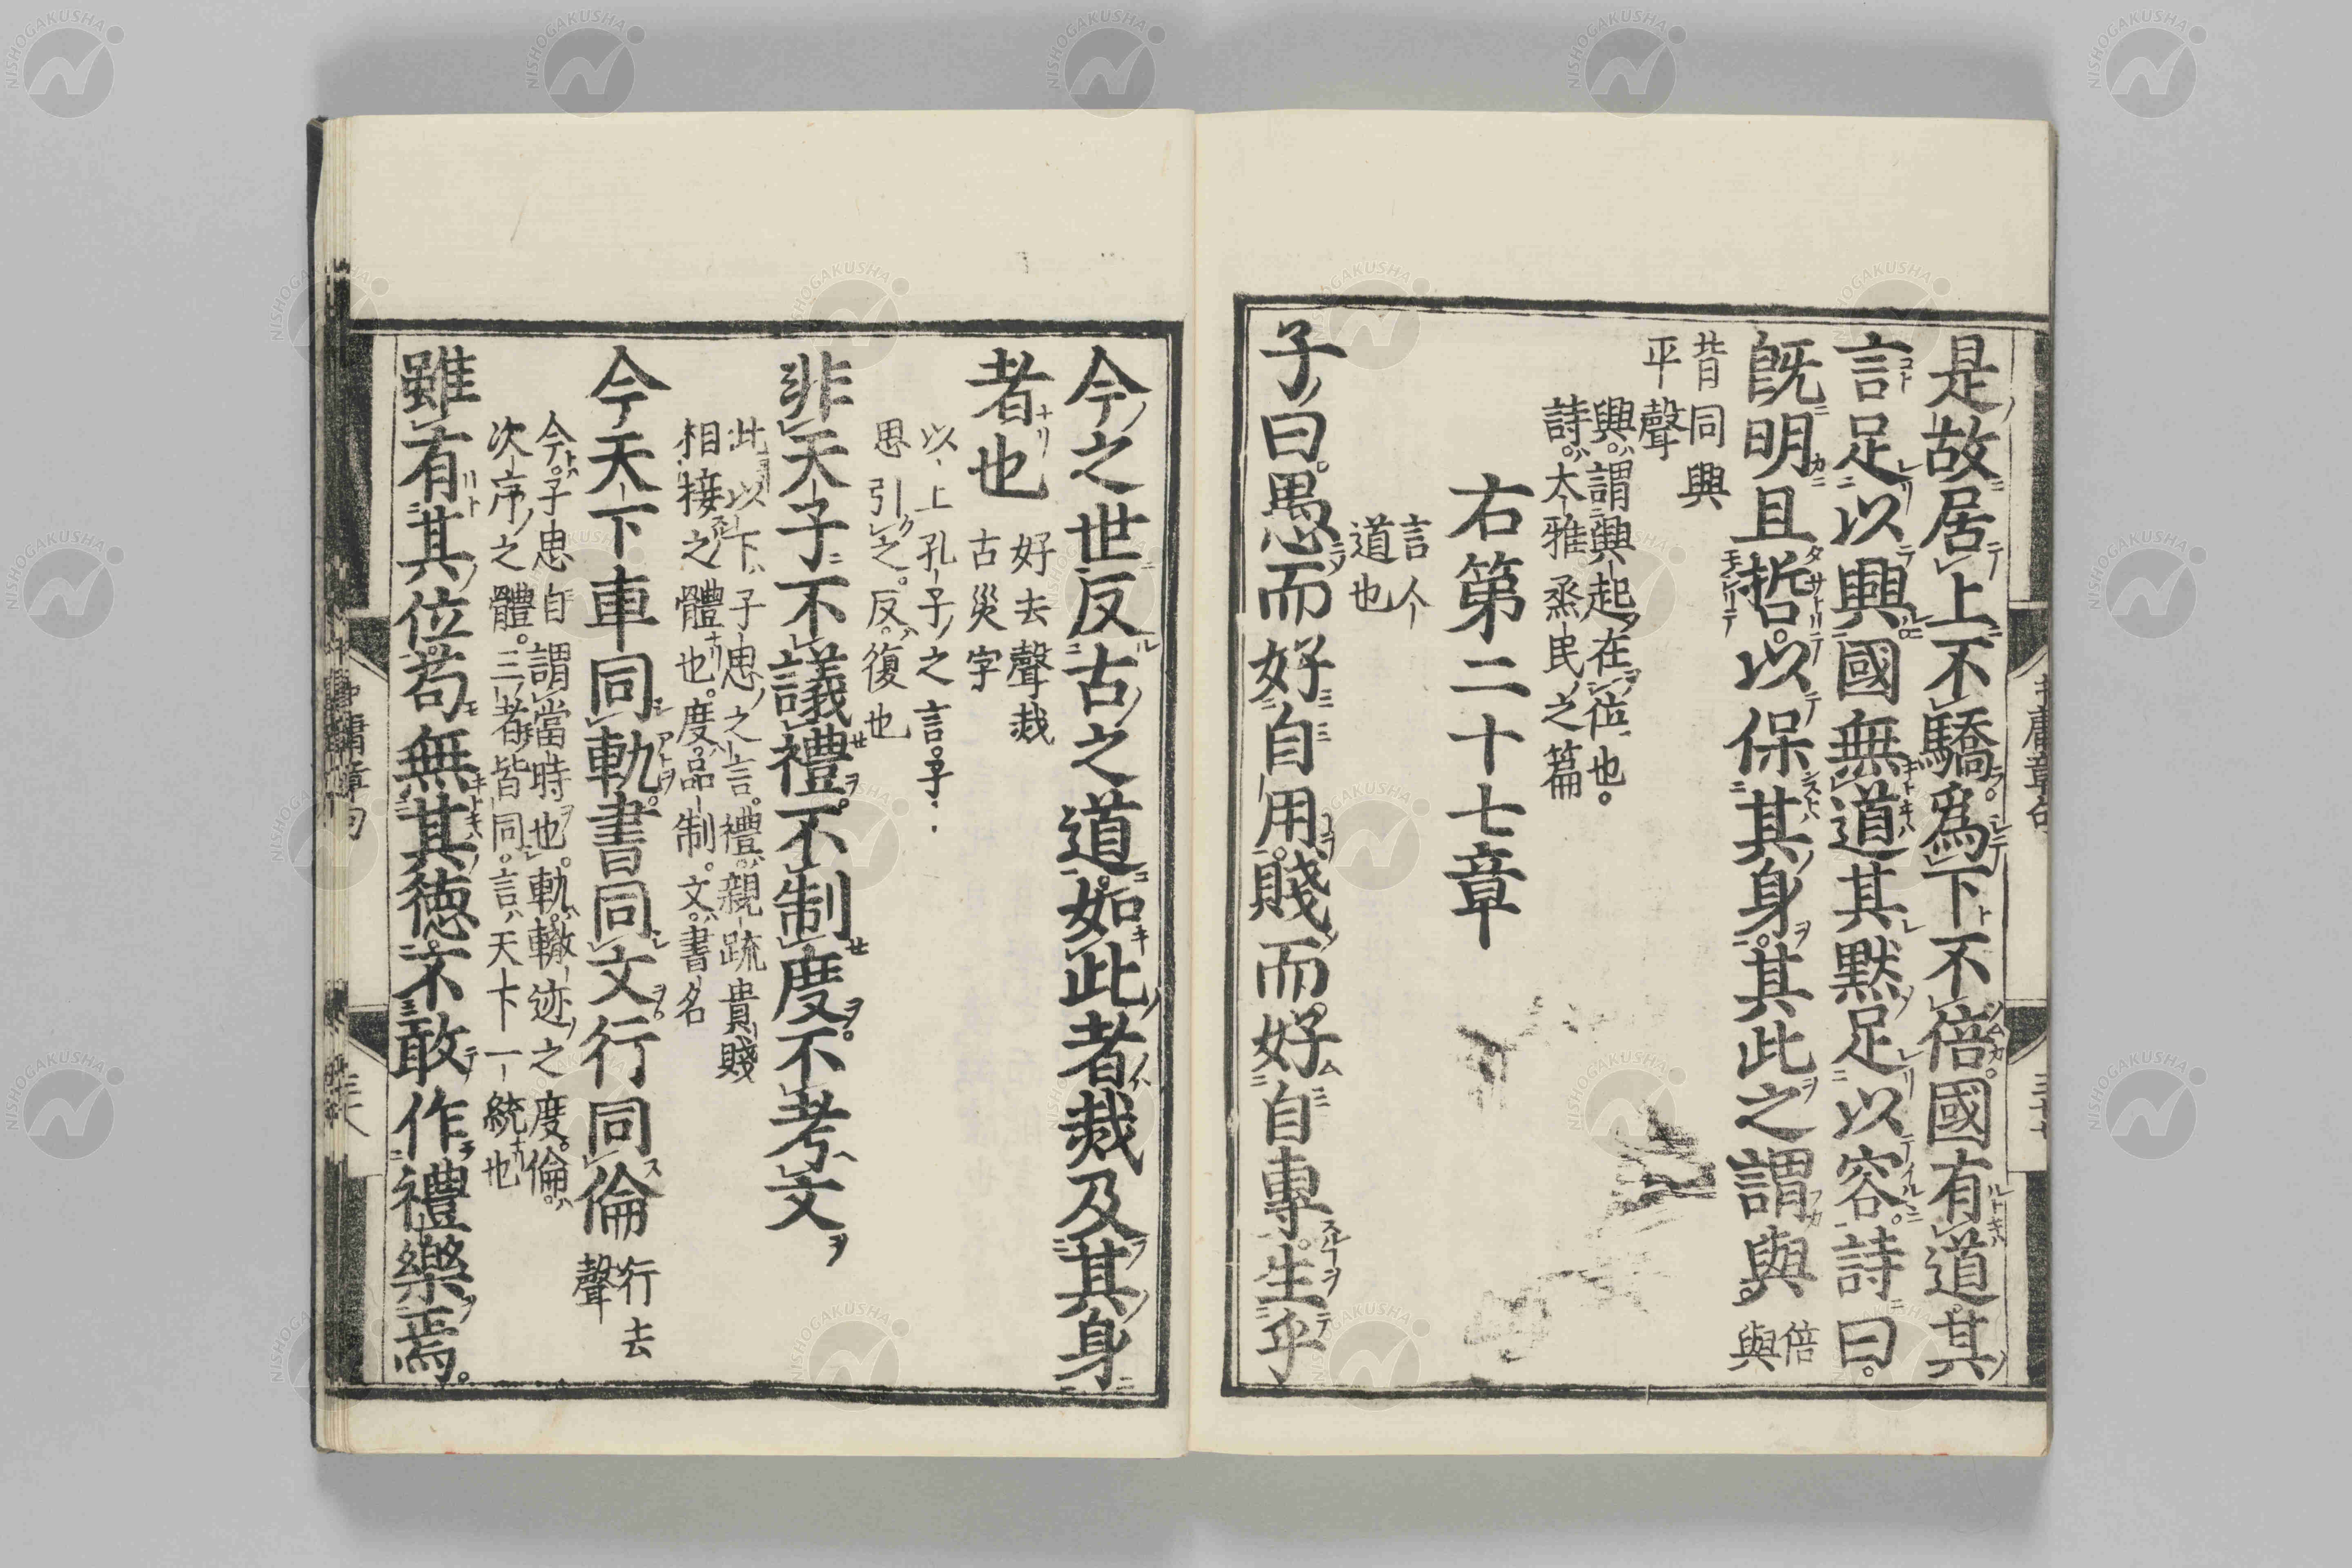 是故居上不驕爲下不倍國有道其
言足以興國無道其黙足以容詩曰
旣明且哲以保其身其此之謂與
倍
與
背同與
平聲
興謂興起在位也
詩大雅烝民之篇
右第二十七章
言人
道也
子曰愚而好自用賤而好自專生乎
今之世反古之道如此者烖及其身
者也
好去聲烖
古災字
以上孔子之言子
思引之反復也
非天子不議禮不制度不考文
此以下子思之言禮親疏貴賤
相接之體也度品制文書名
今天下車同軌書同文行同倫
行去
聲
今子思自謂當時也軌轍迹之度倫
次序之體三者皆同言天下一統也
雖有其位苟無其德不敢作禮樂焉